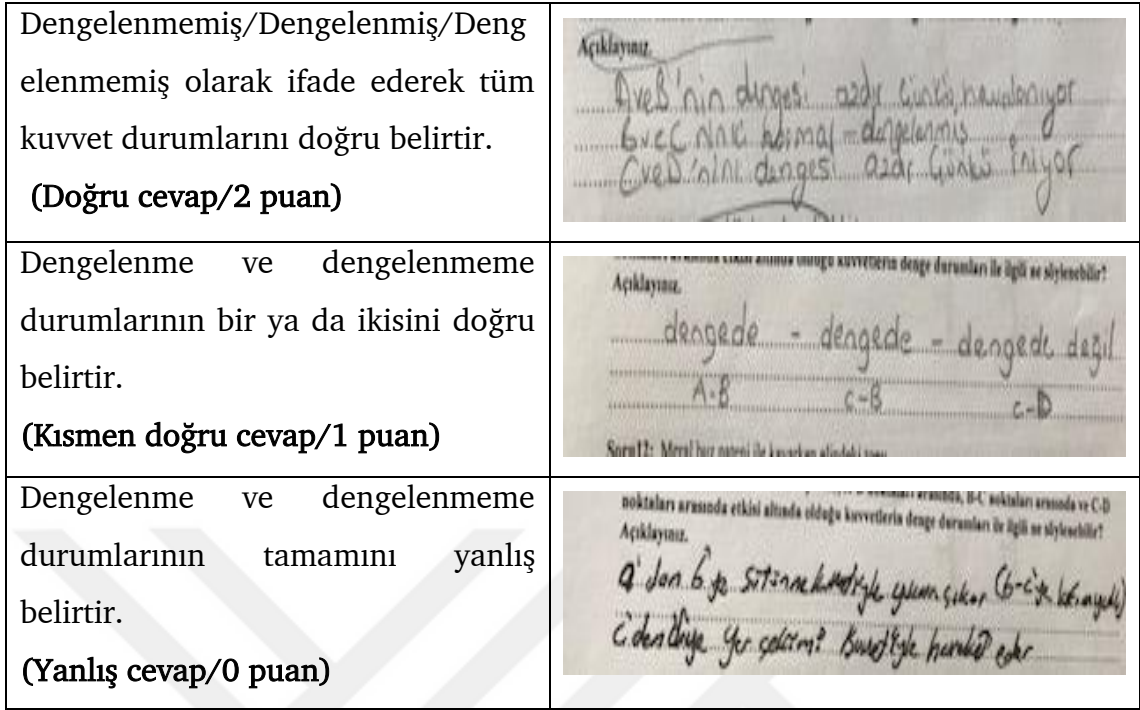 Dengelenmemiş/Dengelenmiş/Deng
elenmemiş olarak ifade ederek tüm
kuvvet durumlarını doğru belirtir.
(Doğru cevap/2 puan)
Açıklayınız.
AveB'nin dengesi azdır Çünkü havalanıyor
BveC ninki normal = dengelenmiş
CveD'nini dengesi azdır Çünkü İniyor
Dengelenme ve dengelenmeme
durumlarının bir ya da ikisini doğru
belirtir.
(Kısmen doğru cevap/1 puan)
olduğu kuvvetlerin denge durumları ile ilgili ne söylenebilir?
Açıklayınız.
dengede - dengede - dengede değil
A-B C-B C-D
Soru12: Meral buz pateni ile kayarken elindeki
Dengelenme ve dengelenmeme
durumlarının tamamını yanlış
belirtir.
(Yanlış cevap/0 puan)
arasında, B-C noktaları arasında ve C-D
noktaları arasında etkisi altında olduğu kuvvetlerin denge durumları ile ilgili ne söylenebilir?
Açıklayınız.
a'dan b'ye çıkar
c'den yer çekimi hareket eder